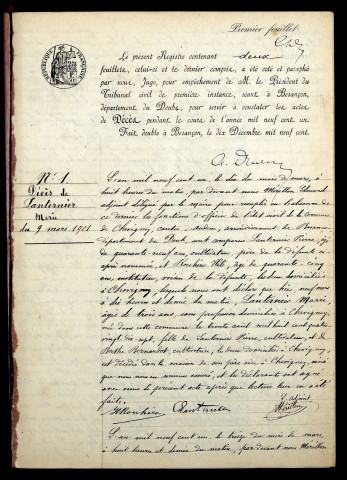 Premier feuillet
Le présent Registre contenant deux
feuillets, celui-ci et le dernier compris, a été coté et paraphé
par nous, Juge, pour empêchement de M. le Président du
Tribunal civil de première instance, séant à Besançon,
département du Doubs, pour servir à constater les actes
de Décès pendant le cours de l'année mil neuf cent un.
Fait double à Besançon, le dix Décembre mil neuf cent.
N° 1.
Décès de
Lanternier
Marie
du 9 mars 1901
L'an mil neuf cent un, le dix du mois de mars, à
huit heures du matin, par devant nous Mérillon Edouard
adjoint délégué par le maire pour remplir en l'absence de
ce dernier la fonction d'officier de l'état civil de la commune
de Chevigney, canton d'Audeux, arrondissement de Besançon
département du Doubs, ont comparu Lanternier Pierre, âgé
de quarante neuf ans, cultivateur, père de la défunte ci-
après nommée, et âgé de quarante cinq
ans, instituteur, voisin de la défunte, les deux domiciliés
à Chevigney, lesquels nous ont déclaré que hier, neuf mars
à dix heures et demie du matin, Lanternier Marie,
âgée de trois ans, sans profession domiciliée à Chevigney,
née dans cette commune le trente août mil huit cent quatre
vingt dix sept, fille de Lanternier Pierre, cultivateur, et de
Berthe Bernardot, cultivatrice, les deux domiciliés à Chevigney,
est décédée dans la maison de son père sise à Chevigney, ainsi
que nous nous en sommes assuré, et les déclarants ont signé
avec nous le présent acte après que lecture leur en a été
faite.
Lanternier
L'adjoint
Mérillon
L'an mil neuf cent un, le treize du mois de mars,
à huit heures et demie du matin, par devant nous Mérillon